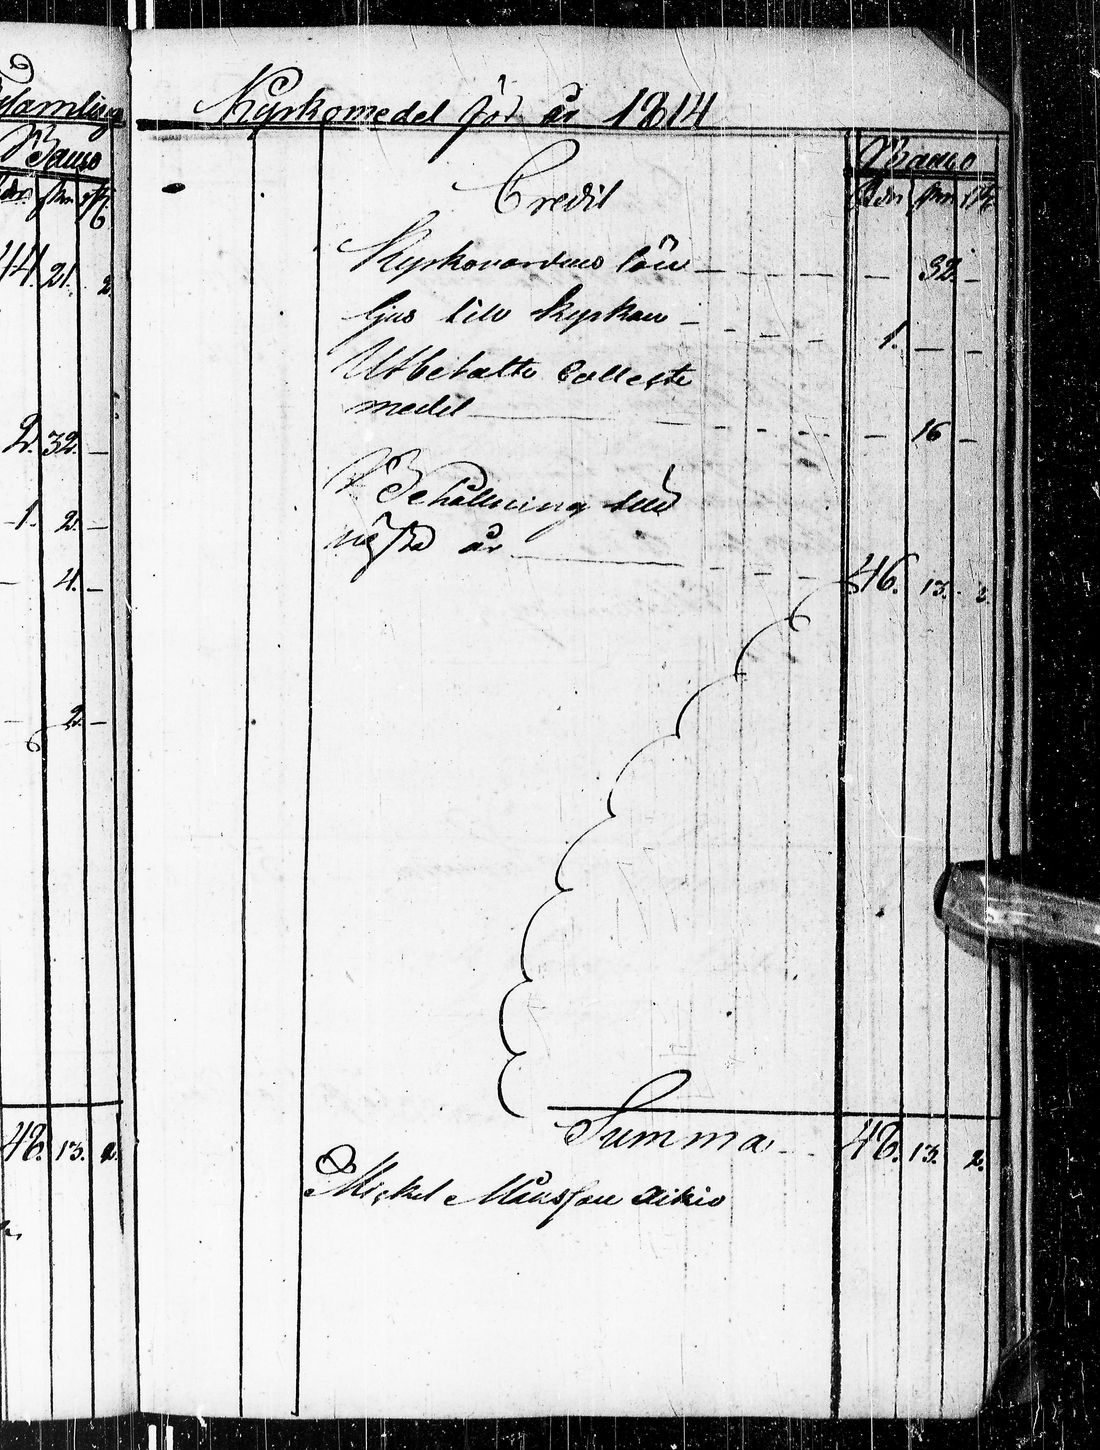 församling
Banco
rdr skn rst
44. 21. 2.
2. 32. –
1. 2. –
– 4. –
– 2. –
48. 13. 2.
Kyrkomedel för år 1814
Banco
Rdr skn rst
Credit
Kyrkovardens lön – – – – – 32. –
ljus till kyrkan – – – – 1. – –
Utbetalte Collecte
medel – – – – – 16 –
Behållning till
nästa år – – – 46. 13. 2.
Summa – – 48. 13. 2.
Mickel Månsson Aikio